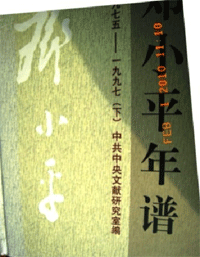 邓小平年谱
一九七五——一九九七（下）
中共中央文献研究室编
邓小平
FEB 1 2010 11:10